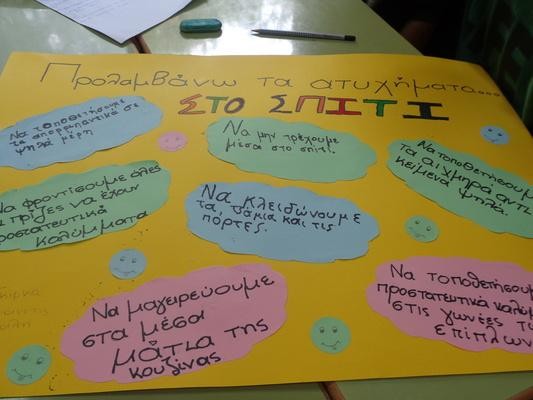 Προλαμβάνω τα ατυχήματα...
ΣΤΟ ΣΠΙΤΙ
Να τοποθετήσουμε
τα απορρυπαντικά σε
ψηλά μέρη
Να μην τρέχουμε
μέσα στο σπίτι.
Να τοποθετήσουμε
τα αιχμηρά αντι
κείμενα ψηλά.
Να φροντίσουμε όλες
πρίζες να έχουν
προστατευτικά
καλύμματα
Να κλειδώνουμε
τα τζάκια και τις
πόρτες.
Να μαγειρεύουμε
στα μέσα
μάτια της
κουζίνας
Να τοποθετήσου
προστατευτικά καλύμ
στις γωνίες τ
επίπλων